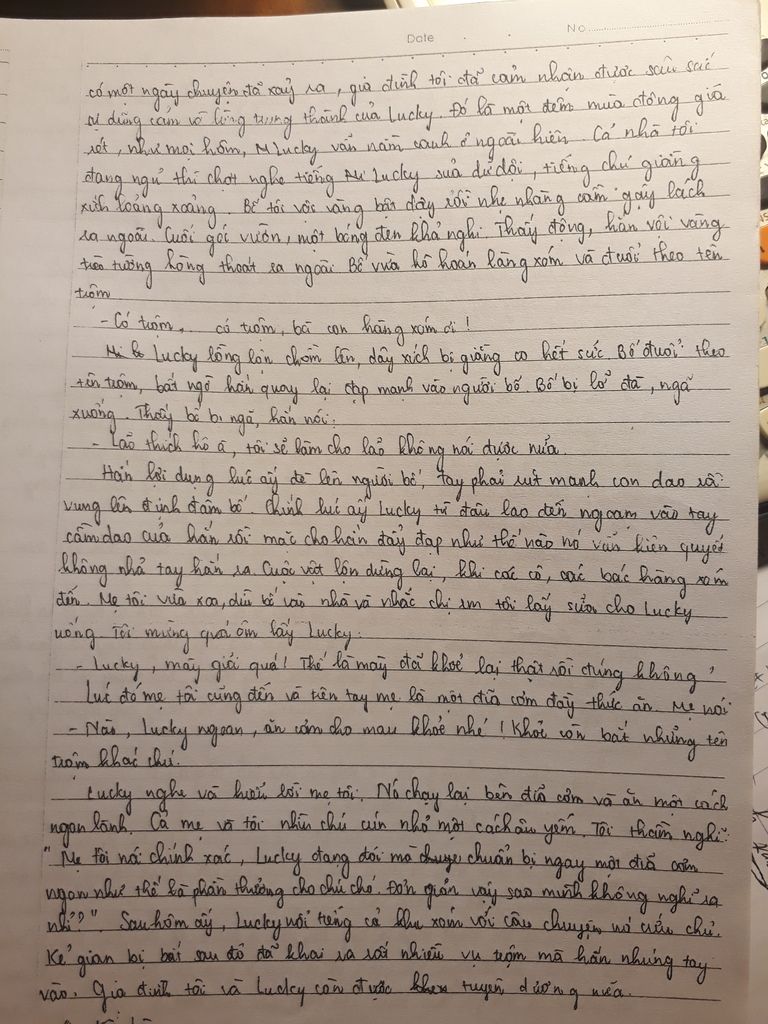 Date
No
có một ngày chuyện đã xảy ra, gia đình tôi đã cảm nhận được sâu sắc
sự dũng cảm và lòng trung thành của Lucky. Đó là một đêm mùa đông giá
rét, như mọi hôm, Lucky vẫn nằm canh ở ngoài hiên. Cả nhà tôi
đang ngủ thì chợt nghe tiếng Lucky sủa dữ dội, tiếng chú giằng
xích loảng xoảng. Bố tôi vội vàng bật dậy rồi nhẹ nhàng cầm gậy lách
ra ngoài. Cuối góc vườn, một bóng đen khả nghi. Thấy động, hắn vội vàng
trèo tường hòng thoát ra ngoài. Bố vừa hô hoán làng xóm và đuổi theo tên
trộm
- Có trộm, có trộm, bà con hàng xóm ơi!
Lucky lồng lộn chồm lên, dây xích bị giằng co hết sức. Bố đuổi theo
tên trộm, bất ngờ hắn quay lại đạp mạnh vào người bố. Bố bị lỡ đà, ngã
xuống. Thấy bố bị ngã, hắn nói:
- Lão thích hô à, tôi sẽ làm cho lão không nói được nữa.
Hắn lợi dụng lúc ấy đè lên người bố, tay phải rút mạnh con dao rồi
vung lên định đâm bố. Chính lúc ấy Lucky từ đâu lao đến ngoạm vào tay
cầm dao của hắn rồi mặc cho hắn đẩy đạp như thế nào nó vẫn kiên quyết
không nhả tay hắn ra. Cuộc vật lộn dừng lại, khi các cô, các bác hàng xóm
đến. Mẹ tôi vừa xoa, dìu bố vào nhà và nhắc chị em tôi lấy sữa cho Lucky
uống. Tôi mừng quá ôm lấy Lucky:
- Lucky, mày giỏi quá! Thế là mày đã khoẻ lại thật rồi đúng không?
Lúc đó mẹ tôi cũng đến và trên tay mẹ là một đĩa cơm đầy thức ăn. Mẹ nói
- Nào, Lucky ngoan, ăn cơm cho mau khoẻ nhé! Khoẻ còn bắt những tên
trộm khác chứ.
Lucky nghe và hiểu lời mẹ tôi. Nó chạy lại bên đĩa cơm và ăn một cách
ngon lành. Cả mẹ và tôi nhìn chú cún nhỏ một cách âu yếm. Tôi thầm nghĩ:
"Mẹ tôi nói chính xác, Lucky đang đói mà chuẩn bị ngay một đĩa cơm
ngon như thế là phần thưởng cho chú chó. Đơn giản vậy sao mình không nghĩ ra
nhỉ?". Sau hôm ấy, Lucky nổi tiếng cả khu xóm với câu chuyện nó cứu chủ.
Kẻ gian bị bắt sau đó đã khai ra rất nhiều vụ trộm mà hắn nhúng tay
vào. Gia đình tôi và Lucky còn được tuyên dương nữa.